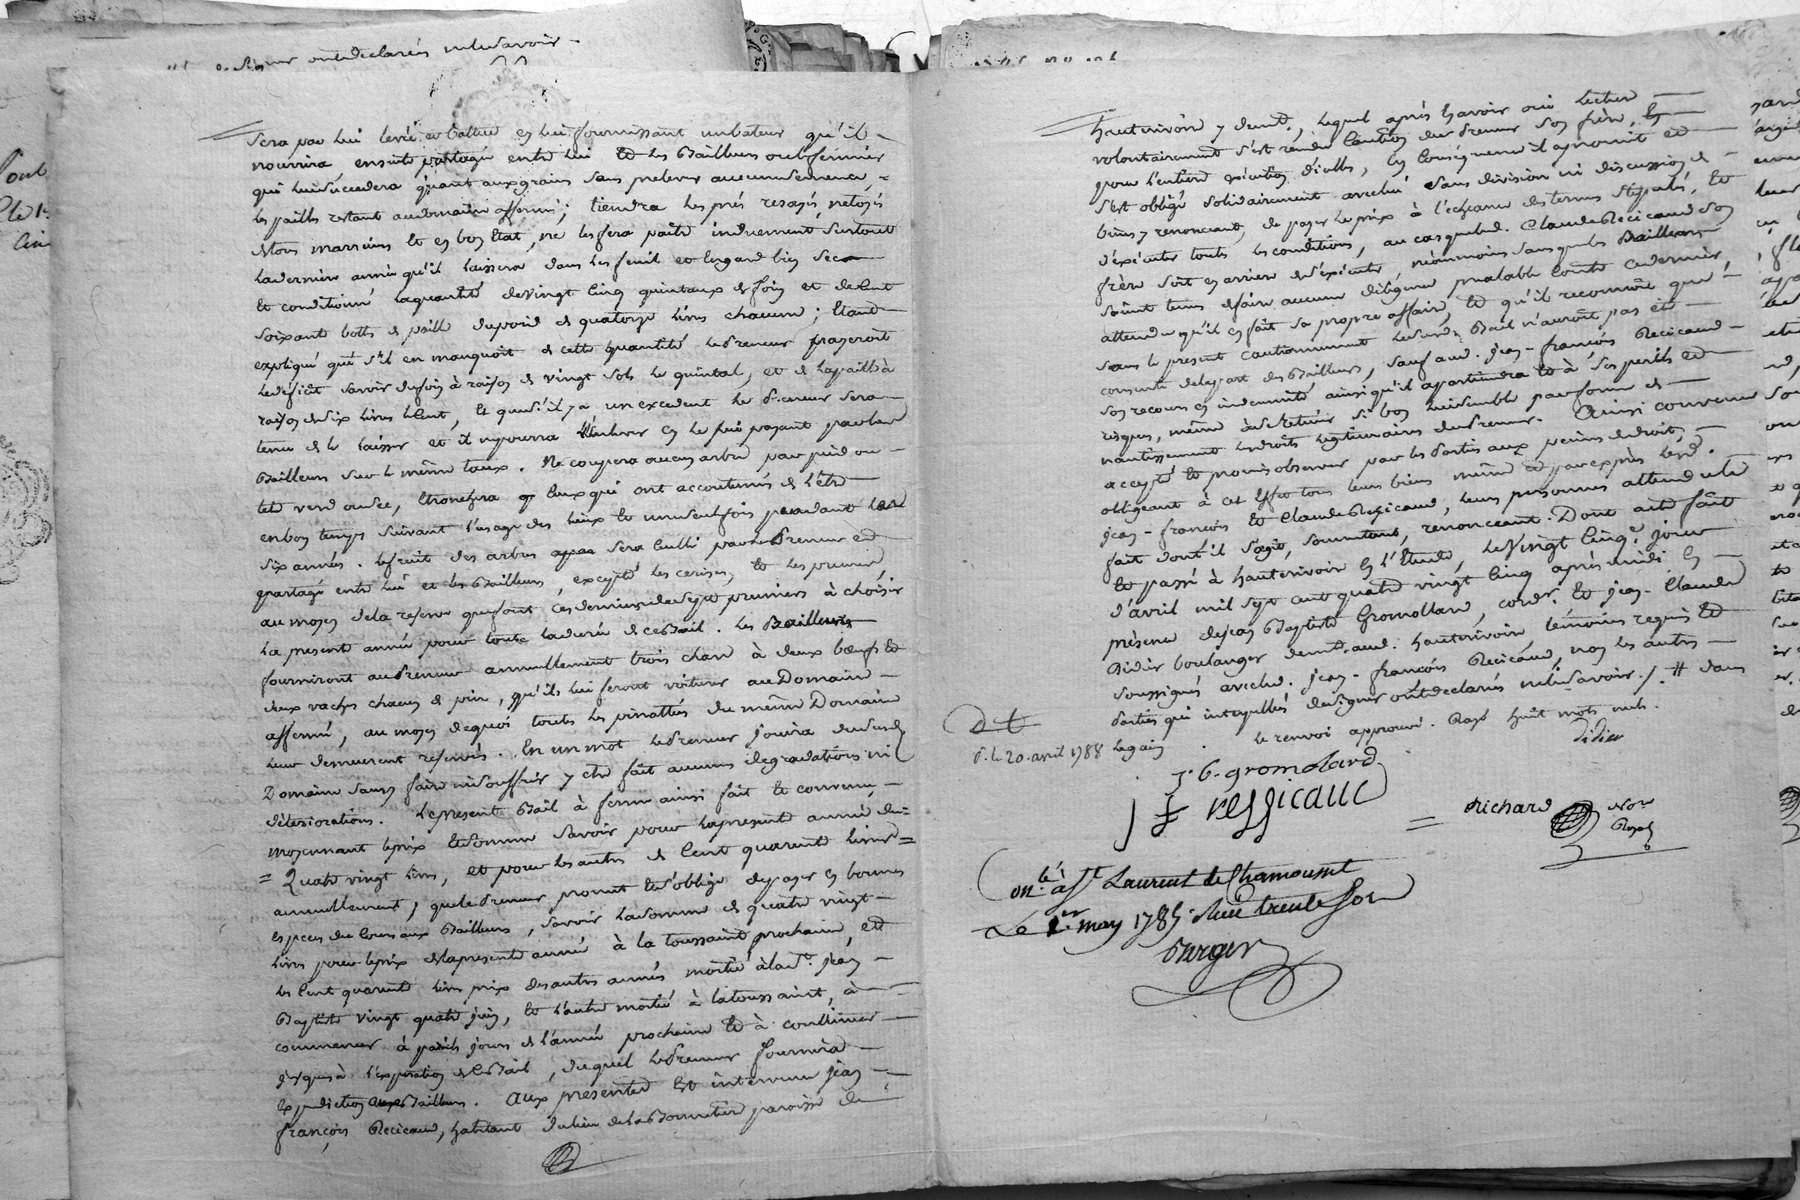 signer ont declarés ne le savoir
sera par lui levée et battue en lui fournissant un bateur qu'il
nourrira ensuite partagée entre lui et les Bailleurs ou le fermier
qui lui succedera quant aux grains sans prelever aucune semence,
les pailles restant au domaine affermé; tiendra les prés resayés, netoyés
et en bon état, ne les fera paitre induement surtout
la derniere année qu'il laissera dans les fenil et hangard bien sec
et conditionné la quantité de vingt cinq quintaux de foin et de cent
soixante bottes de paille du poid de quatorze livres chacune; étant
expliqué que s'il en manquoit de cette quantité le Preneur payeroit
le déficit savoir du foin à raison de vingt sols le quintal, et de la paille à
raison de six livres le cent, et que s'il y a un excedent le Preneur sera
tenu de le laisser et il ne pourra l'enlever en le lui payant par les
Bailleurs sur le même taux. Ne coupera aucun arbre par pied ou
tete verd ou sec, etronchera ceux qui ont accoutumés de l'être
en bon temps suivant l'usage des lieux et une seul fois pendant les
six années. le fruit des arbres sera cuilli par le Preneur et
partagé entre lui et les Bailleurs, excepté les cerises et les prunes,
au moyen de la reserve que font ces derniers de sept pruniers à choisir
la presente année pour toute la durée de ce Bail. les Bailleurs
fourniront au Preneur annuellement trois chars à deux bœufs et
deux vaches chacun de pin, qu'ils lui feront voiturer au Domaine
affermé, au moyen de quoi toutes les pinattées du même Domaine
leur demeurent reservés. En un mot le Preneur jouira dudit
Domaine sans faire ni souffrir y etre fait aucunes degradations ni
déteriorations. le present Bail à ferme ainsi fait et convenu
moyennant le prix et somme savoir pour la presente année de
= Quatre vingt livres, et pour les autres de Cent quarente livres =
annuellement, que le Preneur promet et s'oblige de payer en bonnes
especes de cours aux Bailleurs, savoir la somme de quatre vingt
livres pour le prix de la presente année à la toussaint prochaine, et
les Cent quarente livres prix des autres années moitié à la St. jean
Baptiste vingt quatre juin, et l'autre moitié à la toussaint, à
commencer à pareils jours de l'année prochaine et à continuer
jusques à l'expiration de ce Bail, duquel le Preneur fournira
expedition aux Bailleurs. Aux presentes est intervenu jean
françois Recicaud, habitant du lieu de la Bonnetiere paroisse de
hauterivoire y demt., lequel après avoir oui lecture
volontairement s'est rendu caution du Preneur son frère,
pour l'entiere execution d'icelles, en consequence il a promit et
s'est obligé solidairement avec lui sans division ni discussion de
biens y renonceant, de payer le prix à l'echeance des termes stipulés, et
d'exécuter toutes les conditions, au cas que led. Claude Recicaud son
frère soit en arriere de s'exécuter, néanmoins sans que les Bailleurs
soient tenus de faire aucune diligence prealable contre ce dernier,
attendu qu'il en fait sa propre affaire, et qu'il reconnoit que
sans le present cautionnement le susd. Bail n'auroit pas été
consenti de la part des Bailleurs, sauf aud. jean-françois Recicaud
son recours en indemnité ainsi qu'il apartiendra et à ses perils et
risques, même à se retenir si bon lui semble par forme de
nantissement les droits legitimaires du Preneur. Ainsi convenu
accepté et promis observer par les parties aux peines de droit,
obligeant à cet effet tous leurs biens même et par exprès lesd.
jean-françois et Claude Recicaud, leurs personnes attendu le
fait dont il s'agit, soumettant, renonceant. Dont acte fait
et passé à hauterivoir en l'Etude, le vingt cinq.e jour
d'avril mil sept cent quatre vingt cinq après midi en
présence de jean Baptiste Gromollard, cordr. et jean-Claude
Didier boulanger demt. aud. hauterivoir, témoins requis et
soussignés avec led. jean-françois Recicaud, non les autres
parties qui interpellées de signer ont declarés ne le savoir ./. # dans
le renvoi approuvé. Rayé huit mots nuls.
d. le 20. avril 1788
didier
J. B. gromolard
J f ressicaud
Richard Nore
Royal
Onlé à St Laurent de Chamousset
Le 1.er may 1785. Reçu trente sols
Berger